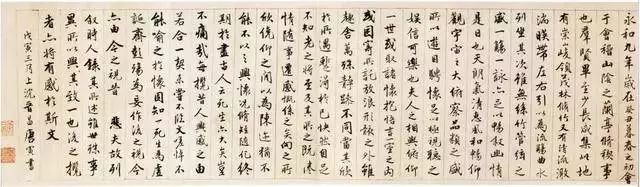 永和九年歲在癸丑暮春之初會
于會稽山陰之蘭亭脩稧事
也羣賢畢至少長咸集此地
有崇峻領茂林脩竹又有清流激
湍暎帶左右引以為流觴曲水
列坐其次雖無絲竹管絃之
盛一觴一詠亦足以暢敘幽情
是日也天朗氣清惠風和暢仰
觀宇宙之大俯察品類之盛
所以遊目騁懷足以極視聽之
娛信可樂也夫人之相與俯仰
一世或取諸懷抱悟言一室之內
或因寄所託放浪形骸之外雖
趣舍萬殊靜躁不同當其欣
於所遇暫得於己快然自足
不知老之將至及其所之既惓
情隨事遷感慨係之矣向之所
欣俛仰之間以為陳迹猶不
能不以之興懷況脩短隨化終
期於盡古人云死生亦大矣豈
不痛哉每攬昔人興感之由
若合一契未嘗不臨文嗟悼不
能喻之於懷固知一死生為虛
誕齊彭殤為妄作後之視今
亦由今之視昔 悲夫故列
敘時人錄其所述雖世殊事
異所以興懷其致一也後之攬
者亦將有感於斯文
戊寅三月上浣晉昌唐寅書